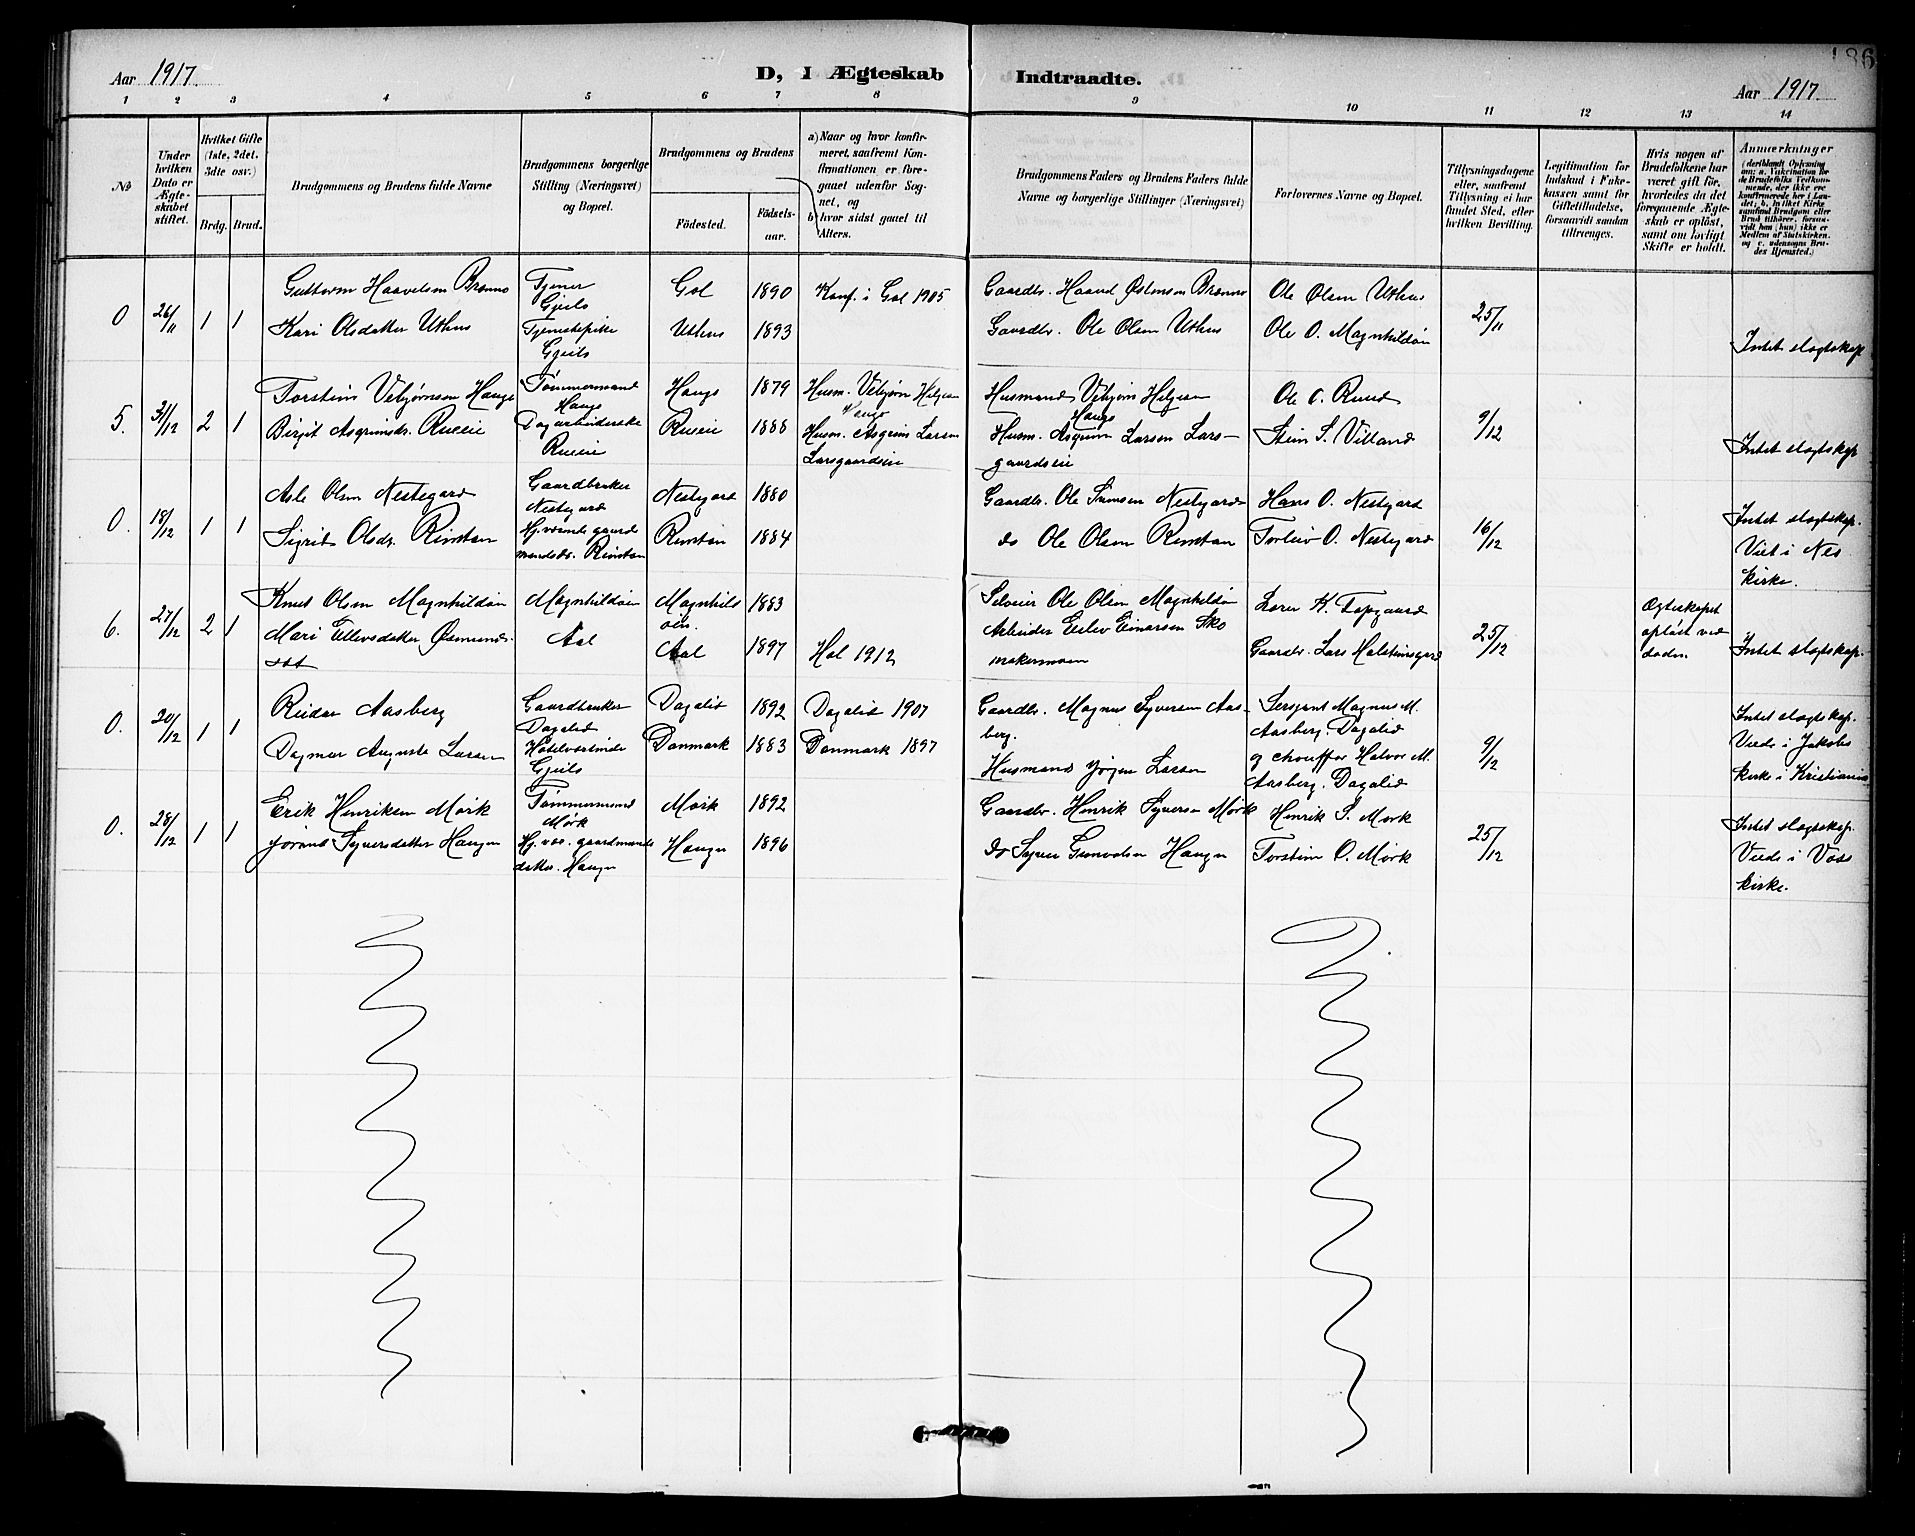 186
Aar 1917.
D, I Ægteskab
Indtraadte.
Aar 1917.
1 2 3 4 5 6 7 8 9 10 11 12 13 14
No
Under hvilken Dato er Ægteskabet stiftet.
Hvilket Gifte (1ste, 2det, 3dte osv.)
Brdg. Brud.
Brudgommens og Brudens fulde Navne
Brudgommens borgerlige Stilling (Næringsvei) og Bopæl.
Brudgommens og Brudens
Födested.
Födsels-aar.
a) Naar og hvor konfirmeret, saafremt Konfirmationen er foregaaet udenfor Sognet, og
b) hvor sidst gaaet til Alters.
Brudgommens Faders og Brudens Faders fulde Navne og borgerlige Stillinger (Næringsvei)
Forlovernes Navne og Bopæl.
Tillysningsdagene eller, saafremt Tillysning ei har fundet Sted, efter hvilken Bevilling.
Legitimation for Indskud i Enkekassen samt for Giftetilladelse, forsaavidt saadan tiltrænges.
Hvis nogen af Brudefolkene har været gift för, hvorledes da det foregaaende Ægteskab er oplöst, samt om lovligt Skifte er holdt.
Anmærkninger
(deriblandt Oplysning om: a. Vakcination for de Brudefolks Vedkommende, der ikke ere konfirmerede her i Landet; b. hvilket Kirkesamfund Brudgom eller Brud tilhörer, forsaavidt han (hun) ikke er Medlem af Statskirken, og c. udensogns Brudes Hjemsted.)
0 26/11 1 1
Guttorm Haavelsen Brænno
Tjener
Gjeilo
Gol 1890
Konf. i Gol 1905
Gaardbr. Haavel Østensen Brænno
Ole Olsen Uthus
25/11
Kari Olsdatter Uthus
Tjenestepike
Gjeilo
Uthus 1893
Gaardbr. Ole Olsen Uthus
Ole O. Magnhildøn
Intet slegtskap
5. 31/12 2 1
Torstein Vebjørnsen Hauge
Tømmermand
Hauge
Hauge 1879
Husm. Vebjørn Helgesen
Hauge
Husmand Vebjørn Helgesen
Hauge
Ole O. Ruud
9/12
Birgit Asgrimsdr. Rueeie
Dagarbeiderske
Rueeie
Rueeie 1888
Husm. Asgrim Larsen
Larsgaardseie
Husm. Asgrim Larsen Larsgaardseie
Stein S. Villand
Intet slegtskap
0. 18/12 1 1
Asle Olsen Nestegard
Gaardbruker
Nestegard
Nestegard 1880
Gaardbr. Ole Simsen Nestegard
Hans O. Nestegard
16/12
Sigrid Olsdr. Rimstan
Hj.værende gaardmandsdr. Rimstan
Rimstan 1884
do Ole Olsen Rimstan
Torleiv O. Nestegard
Intet slegtskap.
Viet i Nes
kirke.
6. 27/12 2 1
Knut Olsen Magnhildøn
Magnhildøen
Magnhildøen. 1883
Selveier Ole Olsen Magnhildøn
Lærer K. Tøpgaard
25/12
Egteskapet
opløst ved
døden.
Mari Eilevsdatter Øsmundset
Aal
Aal 1897
Hol 1912
Arbeider Eilev Einarsen Skomakermoen
Gaardbr. Lars Halsteinsgard
Intet slegtskap.
0. 20/12 1 1
Reidar Aasberg
Gaardbruker
Dagalid
Dagalid 1892
Dagalid 1907
Gaardbr. Magnus Syversen Aasberg.
Sersjant Magnus M.
Aasberg, Dagalid
9/12
Dagmar Auguste Larsen
Hotelværtinde
Gjeilo
Danmark 1883
Danmark 1897
Husmand Jørgen Larsen
og chauffør Halvor M.
Aasberg, Dagalid
Intet slegtskap.
Viede i Jakobs
kirke i Kristiania
0. 28/12 1 1
Erik Henriksen Mørk
Tømmermand
Mørk
Mørk 1892
Gaardbr. Henrik Syversen Mørk
Henrik S. Mørk
25/12
Jørand Syversdatter Haugen
Hj. vær. gaardmandsdatter. Haugen
Haugen 1896
do Syver Gunvalsen Haugen
Torstein O. Mørk
Intet slegtskap.
Viede i Voss
kirke.